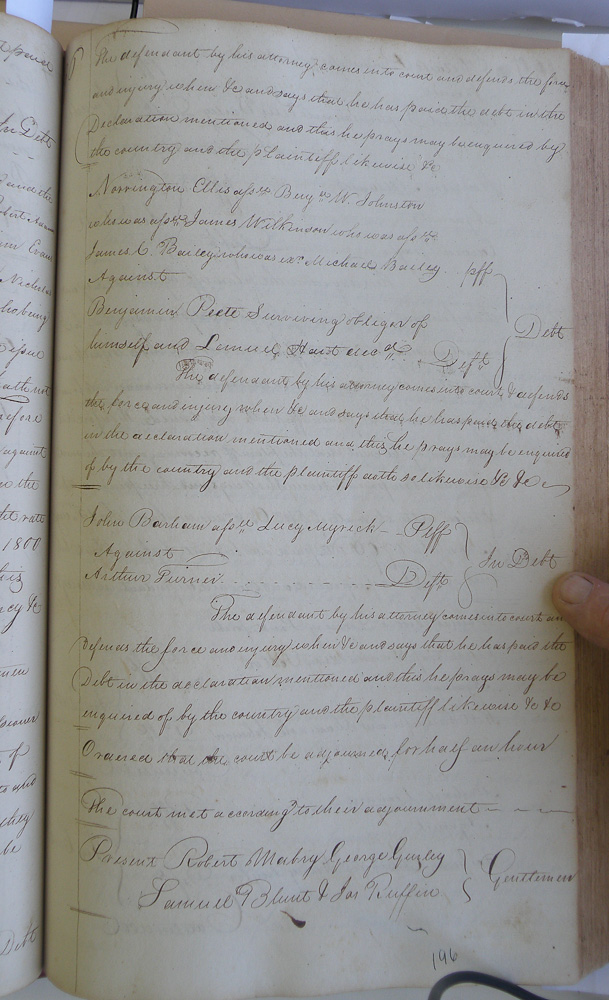 The defendant by his attorney comes into court and defends the force
and injury when &c and says that he has paid the debt in the
Declaration mentioned and this he prays may be enquired by
the country and the plaintiff likewise &c
Norrington Ellis asse Benjn W. Johnston
who was asse James Wilkinson who was asse
James C. Bailey who was exr Michael Bailey. plff
Against
Debt
Benjamin Peete Surviving obligor of
himself and Lemuel Hart decd Deft
The defendant by his attorney comes into court & defends
the force and injury when &c and says that he has paid the debt
in the declaration mentioned and this he prays may be enquired
of by the country and the plaintiff doth so likewise &c &c
John Barham asse Lucy Myrick Plff
Against
In Debt
Arthur Turner Deft
The defendant by his attorney comes into court an
defends the force and injury when &c and says that he has paid the
Debt in the declaration mentioned and this he prays may be
enquired of by the country and the plaintiff likewise &c &c
Ordered that the court be adjourned for half an hour
The court met according to their adjournment
Present Robert Mabry George Gurley
Gentlemen
Samuel Blunt & Jas Ruffin
196
a paid
In Debt
and the
Evans
Nicholas
the
before
against
in the
the rate
1800
his
&c
of
they
be
Debt